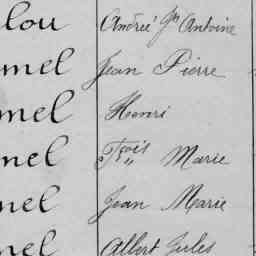 lou André Jh Antoine
mel Jean Pierre
mel Henri
mel Fçois Marie
mel Jean Marie
mel Albert Jules